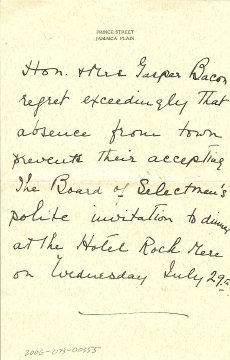 PRINCE STREET
JAMAICA PLAIN
Hon. & Mrs Gaspar Bacon
regret exceedingly that
absence from town
prevents their accepting
The Board of Selectmen's
polite invitation to dinner
at the Hotel Rock Mere
on Wednesday July 29th
2006-073-00355